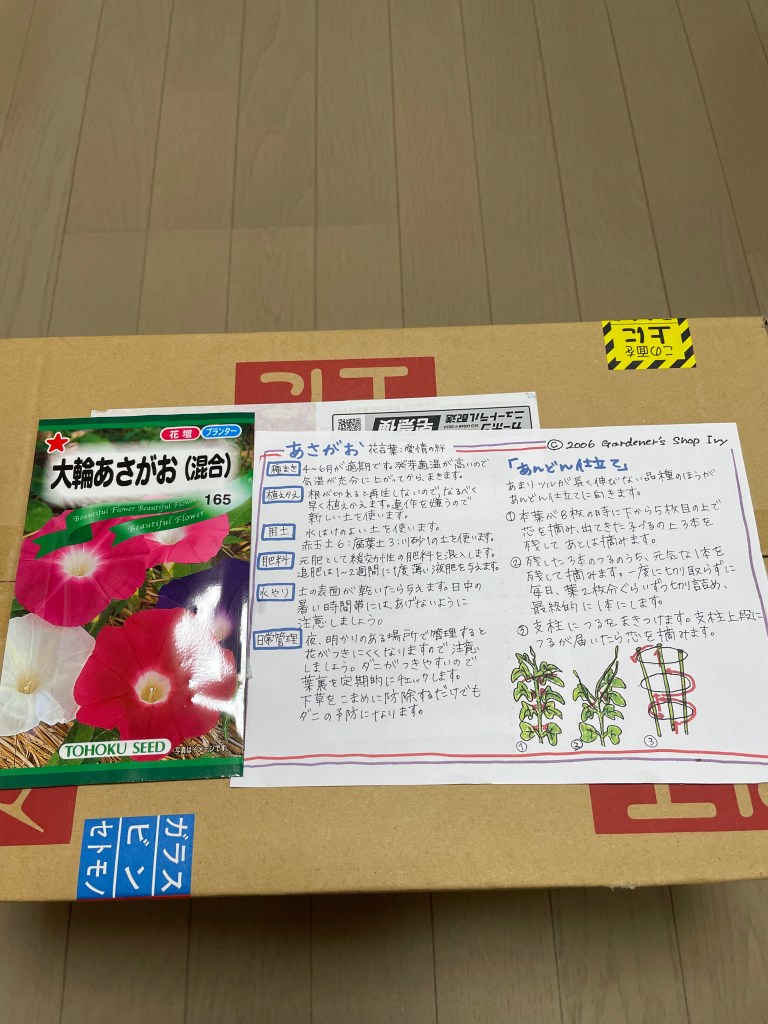 この面を
上に
ニュートラル配送
宅急便
花壇
プランター
大輪あさがお(混合)
165
Beautiful Flower Beautiful Flower
Beautiful Flower
TOHOKU SEED
写真はイメージです。
あさがお 花言葉:愛情の絆
© 2006 Gardener's Shop Ivy
種まき 4~6月が適期です。発芽温度が高いので
気温が充分に上がってからまきます。
植えかえ 根がやれると再生しないので、なるべく
早く植えかえます。連作を嫌うので
新しい土を使います。
用土 水はけのよい土を使います。
赤玉土6:腐葉土3:川砂1の土を使います。
肥料 元肥として緩効性の肥料を混入します。
追肥は1~2週間に1度薄い液肥を与えます。
水やり 土の表面が乾いたら与えます。日中の
暑い時間帯には、あげないように
注意しましょう。
日常管理 夜、明かりのある場所で管理すると
花がつきにくくなりますので注意
しましょう。ダニがつきやすいので
葉裏を定期的にチェックします。
下草をこまめに防除するだけでも
ダニの予防になります。
「あんどん仕立て」
あまりツルが長く伸びない品種のほうが
あんどん仕立てに向きます。
① 本葉が8枚の時に下から5枚目の上で
芯を摘み、出てきた子づるの上3本を
残してあとは摘みます。
② 残した3本のつるのうち、元気な1本を
残して摘みます。一度に切り取らずに
毎日、葉2枚分ぐらいずつ切り詰め、
最終的に1本にします。
③ 支柱につるをまきつけます。支柱上段に
つるが届いたら芯を摘みます。
①
②
③
ガラス
ビン
セトモノ